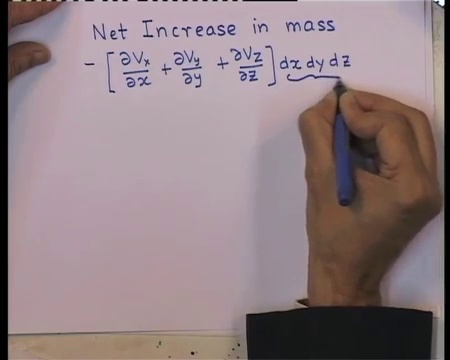 Net Increase in mass
- [ ∂Vx/∂x + ∂Vy/∂y + ∂Vz/∂z ] dx dy dz